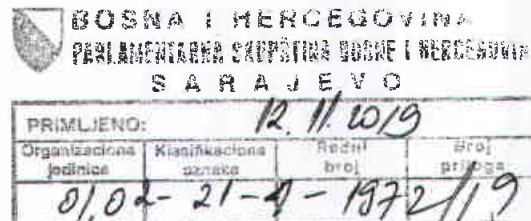 BOSNA I HERCEGOVINA
PARLAMENTARNA SKUPŠTINA BOSNE I HERCEGOVINE
SARAJEVO
PRIMLJENO: 12. 11. 2019
Organizaciona jedinica Klasifikaciona oznaka Redni broj Broj priloga
01,02- 21-4 - 1972/19